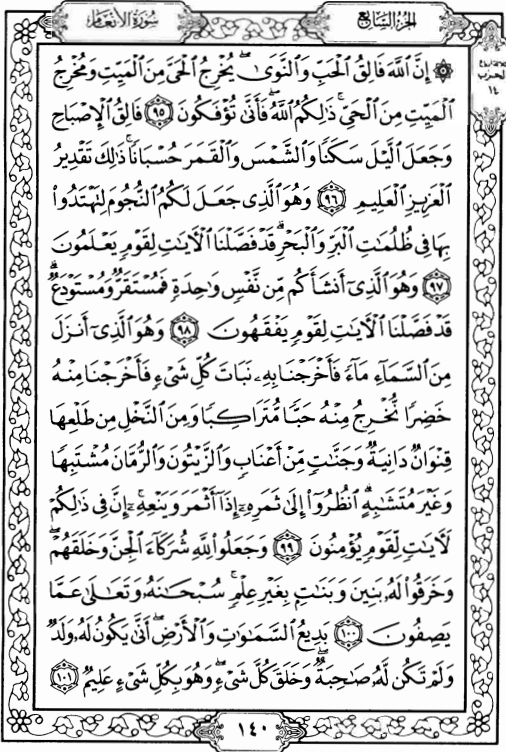 سُورَةُ الأَنعَام
الجُزءُ السَّابِعُ
الحِزب
١٤
۞ إِنَّ ٱللَّهَ فَالِقُ ٱلْحَبِّ وَٱلنَّوَىٰ ۖ يُخْرِجُ ٱلْحَىَّ مِنَ ٱلْمَيِّتِ وَمُخْرِجُ
ٱلْمَيِّتِ مِنَ ٱلْحَىِّ ۚ ذَٰلِكُمُ ٱللَّهُ ۖ فَأَنَّىٰ تُؤْفَكُونَ ٩٥ فَالِقُ ٱلْإِصْبَاحِ
وَجَعَلَ ٱلَّيْلَ سَكَنًا وَٱلشَّمْسَ وَٱلْقَمَرَ حُسْبَانًا ۚ ذَٰلِكَ تَقْدِيرُ
ٱلْعَزِيزِ ٱلْعَلِيمِ ٩٦ وَهُوَ ٱلَّذِى جَعَلَ لَكُمُ ٱلنُّجُومَ لِتَهْتَدُوا۟
بِهَا فِى ظُلُمَٰتِ ٱلْبَرِّ وَٱلْبَحْرِ ۗ قَدْ فَصَّلْنَا ٱلْءَايَٰتِ لِقَوْمٍ يَعْلَمُونَ
٩٧ وَهُوَ ٱلَّذِىٓ أَنشَأَكُم مِّن نَّفْسٍ وَٰحِدَةٍ فَمُسْتَقَرٌّ وَمُسْتَوْدَعٌ ۗ
قَدْ فَصَّلْنَا ٱلْءَايَٰتِ لِقَوْمٍ يَفْقَهُونَ ٩٨ وَهُوَ ٱلَّذِىٓ أَنزَلَ
مِنَ ٱلسَّمَآءِ مَآءً فَأَخْرَجْنَا بِهِۦ نَبَاتَ كُلِّ شَىْءٍ فَأَخْرَجْنَا مِنْهُ
خَضِرًا نُّخْرِجُ مِنْهُ حَبًّا مُّتَرَاكِبًا وَمِنَ ٱلنَّخْلِ مِن طَلْعِهَا
قِنْوَانٌ دَانِيَةٌ وَجَنَّٰتٍ مِّنْ أَعْنَابٍ وَٱلزَّيْتُونَ وَٱلرُّمَّانَ مُشْتَبِهًا
وَغَيْرَ مُتَشَٰبِهٍ ۗ ٱنظُرُوٓا۟ إِلَىٰ ثَمَرِهِۦٓ إِذَآ أَثْمَرَ وَيَنْعِهِۦٓ ۚ إِنَّ فِى ذَٰلِكُمْ
لَءَايَٰتٍ لِّقَوْمٍ يُؤْمِنُونَ ٩٩ وَجَعَلُوا۟ لِلَّهِ شُرَكَآءَ ٱلْجِنَّ وَخَلَقَهُمْ ۖ
وَخَرَقُوا۟ لَهُۥ بَنِينَ وَبَنَٰتٍۭ بِغَيْرِ عِلْمٍ ۚ سُبْحَٰنَهُۥ وَتَعَٰلَىٰ عَمَّا
يَصِفُونَ ١٠٠ بَدِيعُ ٱلسَّمَٰوَٰتِ وَٱلْأَرْضِ ۖ أَنَّىٰ يَكُونُ لَهُۥ وَلَدٌ
وَلَمْ تَكُن لَّهُۥ صَٰحِبَةٌ ۖ وَخَلَقَ كُلَّ شَىْءٍ ۖ وَهُوَ بِكُلِّ شَىْءٍ عَلِيمٌ ١٠١
١٤٠